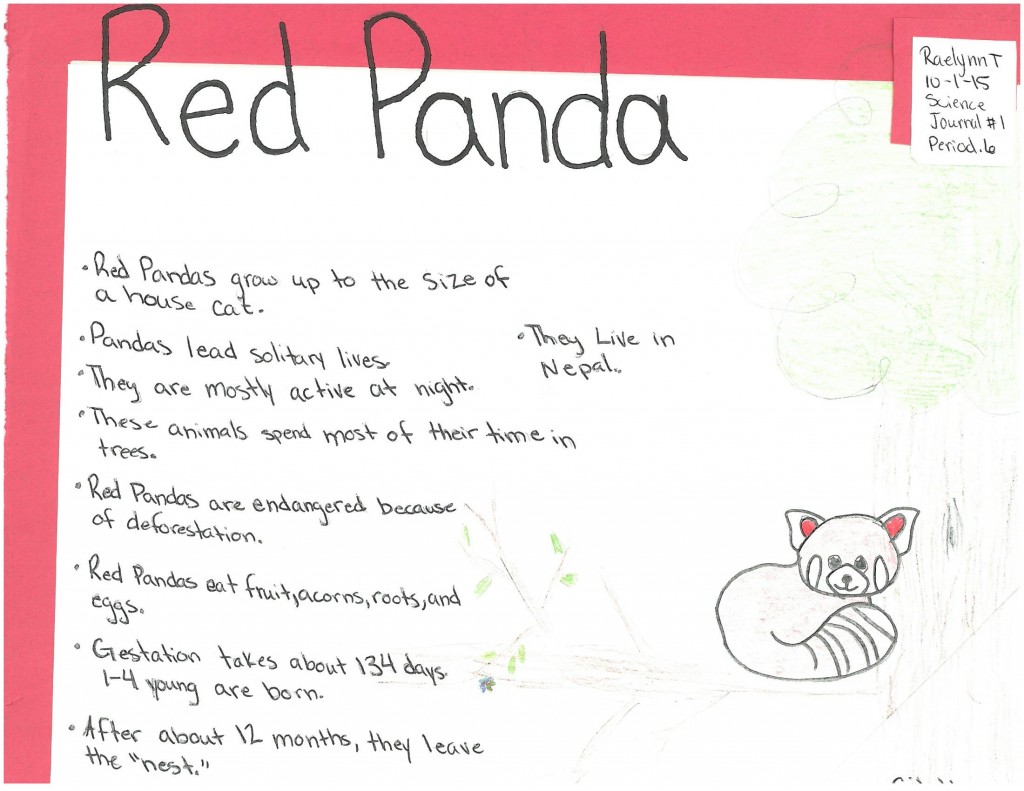 Red Panda
Raelynn T
10-1-15
Science
Journal #1
Period.6
•Red Pandas grow up to the size of
a house cat.
•Pandas lead solitary lives.
•They are mostly active at night.
•These animals spend most of their time in
trees.
•Red Pandas are endangered because
of deforestation.
•Red Pandas eat fruit, acorns, roots, and
eggs.
•Gestation takes about 134 days.
1-4 young are born.
•After about 12 months, they leave
the "nest."
•They Live in
Nepal.